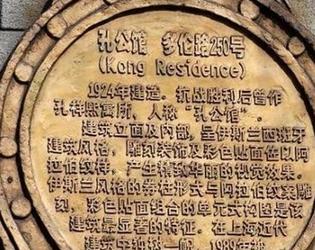 孔公馆 多伦路250号
(Kong Residence)
1924年建造。抗战胜利后曾作
孔祥熙寓所，人称“孔公馆”。
建筑立面及内部，呈伊斯兰西班牙
建筑风格，雕刻装饰及彩色贴面佐以阿
拉伯纹样，产生特殊华丽的视觉效果。
伊斯兰风格的券柱形式与阿拉伯纹案雕
刻，彩色贴面组合的单元式构图是该
建筑最显著的特征。在上海近代
建筑中独树一帜。1989年